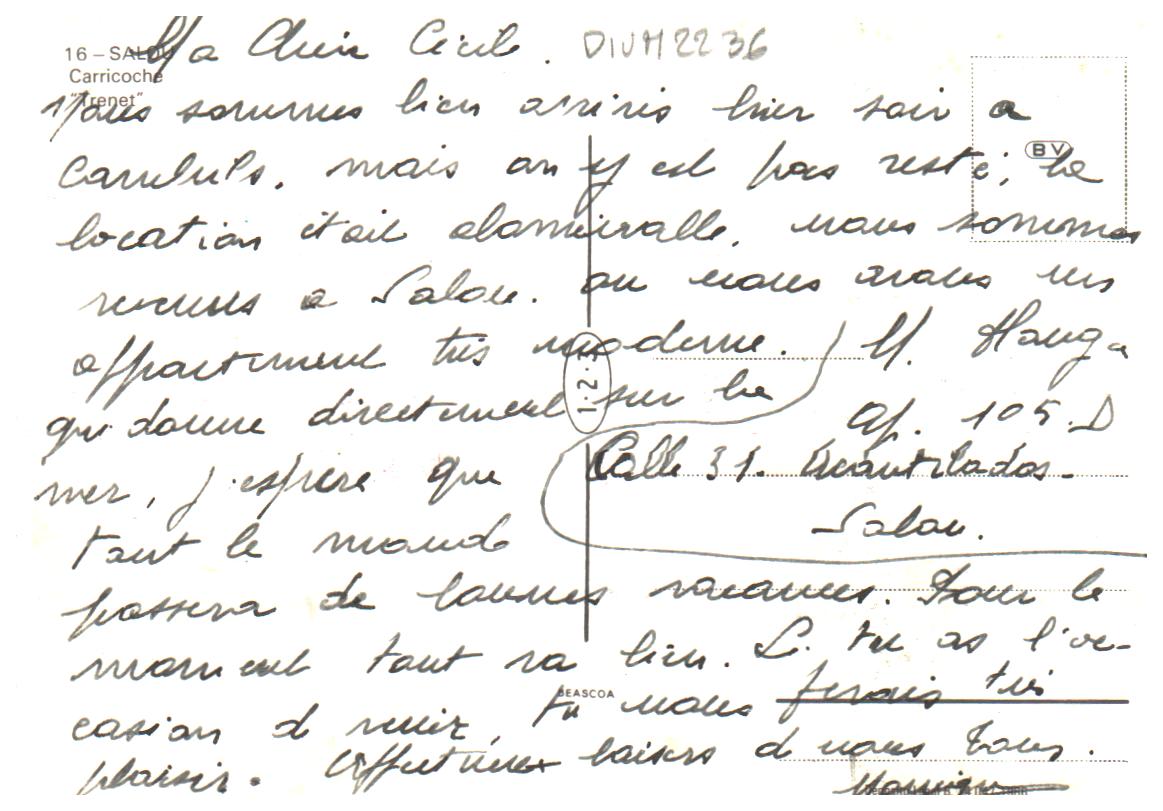 16 – SALOU
Carricoche
"Trenet"
Ma Chère Cécile. DIVM2236
Nous sommes bien arrivés hier soir a
Cambrils. mais on y est pas resté, la
BV
location était abominable. nous sommes
revenus a Salou. ou nous avons un
appartement très moderne.
qui donne directement sur la
mer, j'espère que
tout le monde
1·2·
M. Hauga
Ap. 105.D
Calle 31. Acantilados.
Salou.
passera de bonnes vacances. Pour le
moment tout va bien. Si tu as l'oc-
casion d venir, tu nous ferais très
BEASCOA
plaisir. Affectueux baisers d nous tous.